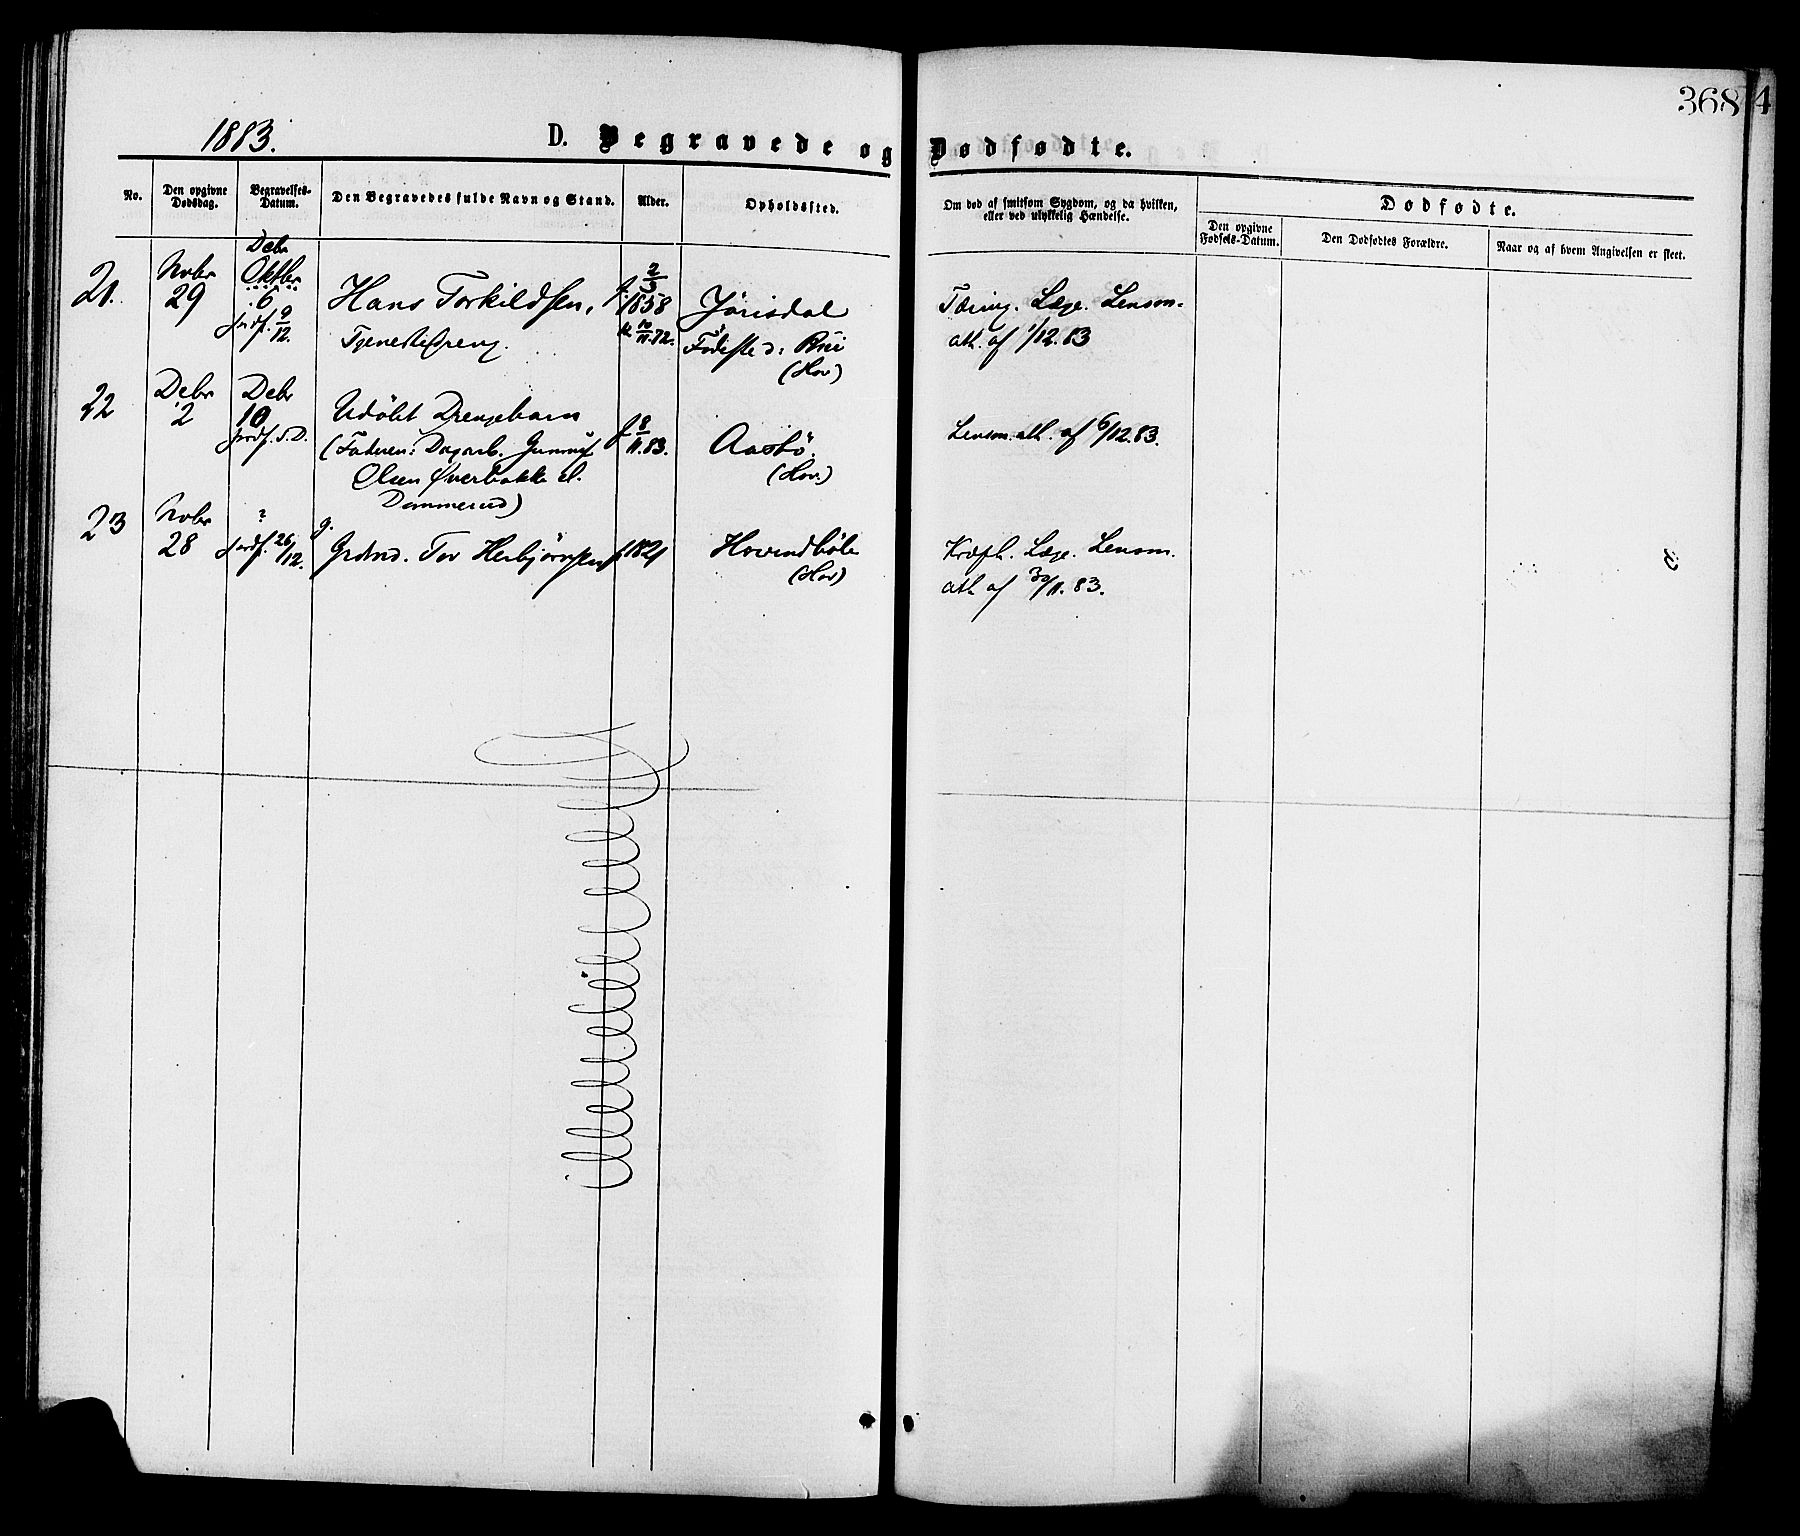 368
4
1883.
D. Begravede og Dødfødte.
No.
Den opgivne Dødsdag.
Begravelses-Datum.
Den Begravedes fulde Navn og Stand.
Alder.
Opholdssted.
Om død af smitsom Sygdom, og da hvilken, eller ved ulykkelig Hændelse.
Dødfødte.
Den opgivne Fødsels-Datum.
Den Dødfødtes Forældre.
Naar og af hvem Angivelsen er skeet.
21.
Novbr 29
Debr
Oktbr
6
jordf. 9/12.
Hans Torkildsen,
Tjenestedreng.
f. 2/3 1858
k 10/11.72.
Jörisdal
Födested: Bøe
(Hov)
Tæring. Læge. Lensm.
att. af 1/12.83
22
Debr 2
Debr 10
jordf. S.D.
Udöbt Drengebarn
(Faderen: Dagarb. Gunnuf
Olsen Øverbakke el.
Dammerud)
f 8/11.83.
Aasbö.
(Hov.)
Lensm. att. af 6/12.83.
23
Novbr 28
?
jordf. 26/12.
g.
Grdmd. Tov Herbjörnsen
f 1821
Hovindböle
(Hov)
Kræft. Læge. Lensm.
att af 30/11.83.